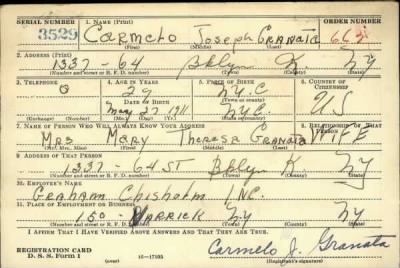 SERIAL NUMBER 1. NAME (Print) ORDER NUMBER
3529 CARMELO JOSEPH GRANATA
(First) (Middle) (Last)
2. ADDRESS (Print)
1337-64 Bklyn K NY
(Number and street or R. F. D. number) (Town) (County) (State)
3. TELEPHONE 4. AGE IN YEARS 5. PLACE OF BIRTH 6. COUNTRY OF CITIZENSHIP
O 29 N.Y.C US
DATE OF BIRTH (Town or county)
May 27 1911 N.Y.C.
(Exchange) (Number) (Mo.) (Day) (Yr.) (State or country)
7. NAME OF PERSON WHO WILL ALWAYS KNOW YOUR ADDRESS 8. RELATIONSHIP OF THAT PERSON
Mrs Mary Theresa Granata WIFE
(Mr., Mrs., Miss) (First) (Middle) (Last)
9. ADDRESS OF THAT PERSON
1337-64 ST Bklyn K NY
(Number and street or R. F. D. number) (Town) (County) (State)
10. EMPLOYER'S NAME
GRAHAM CHISHOLM INC.
11. PLACE OF EMPLOYMENT OR BUSINESS
150 VARRICK NY NY
(Number and street or R. F. D. number) (Town) (County) (State)
I AFFIRM THAT I HAVE VERIFIED ABOVE ANSWERS AND THAT THEY ARE TRUE.
REGISTRATION CARD
D. S. S. Form 1 (over) 16-17105 Carmelo J. Granata
(Registrant's signature)